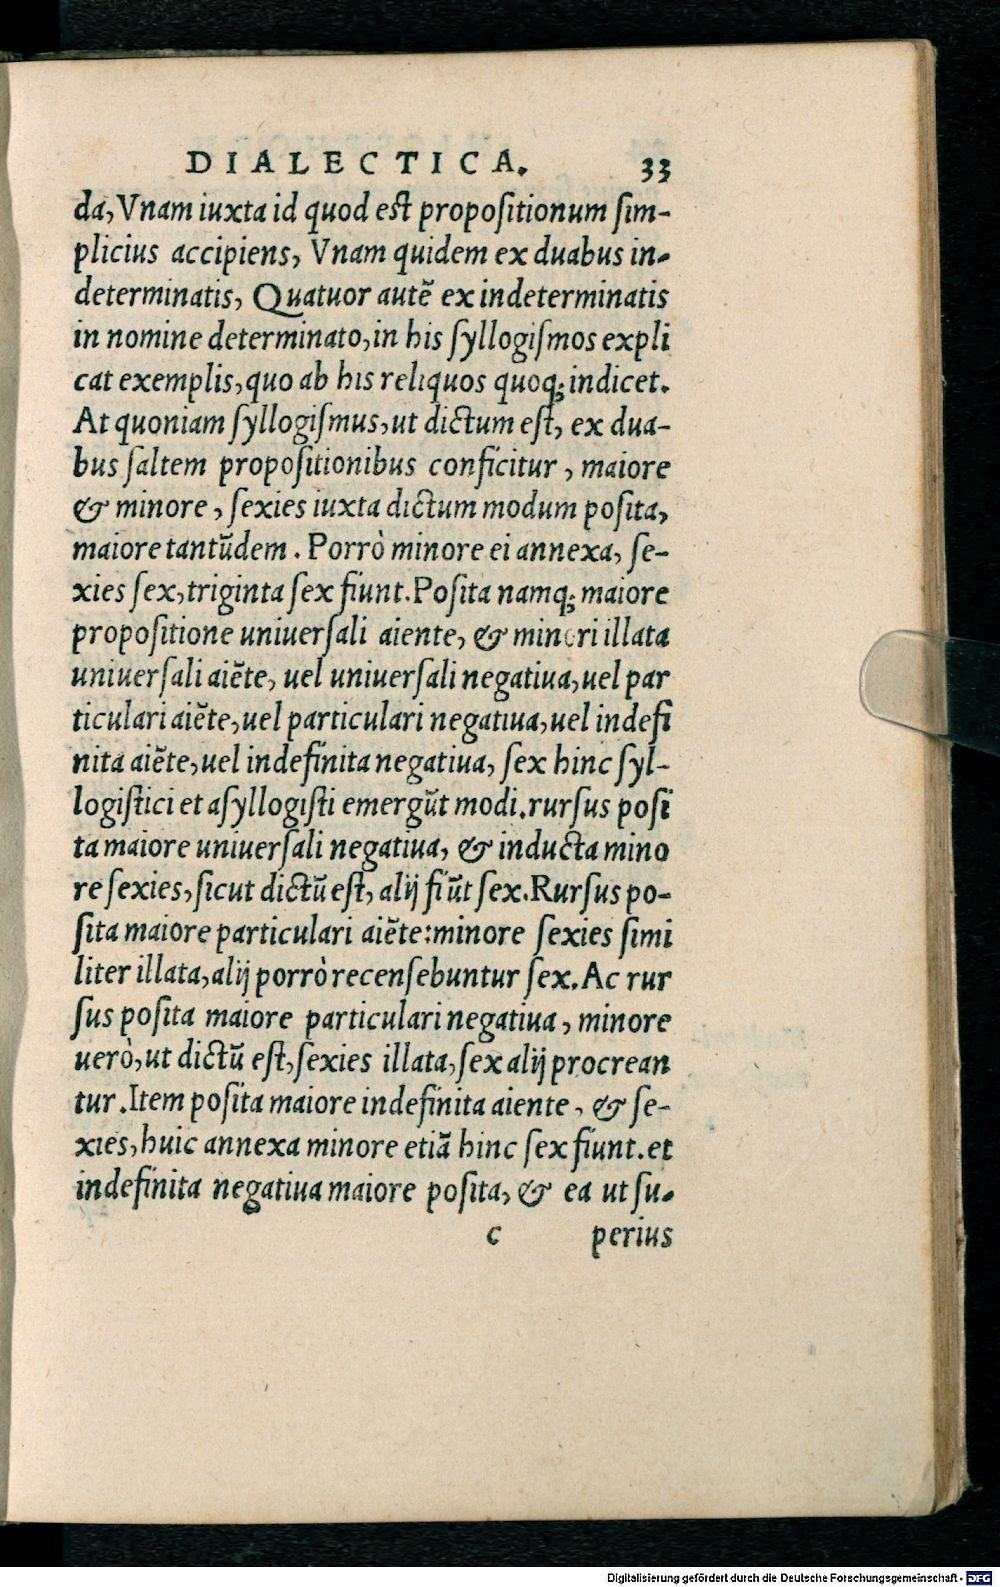 DIALECTICA. 33
da, Vnam iuxta id quod est propositionum sim-
plicius accipiens, Vnam quidem ex duabus in-
determinatis, Quatuor autẽ ex indeterminatis
in nomine determinato, in his syllogismos expli
cat exemplis, quo ab his reliquos quoq; indicet.
At quoniam syllogismus, ut dictum est, ex dua-
bus saltem propositionibus conficitur, maiore
& minore, sexies iuxta dictum modum posita,
maiore tantũdem. Porrò minore ei annexa, se-
xies sex, triginta sex fiunt. Posita namq; maiore
propositione uniuersali aiente, & minori illata
uniuersali aiẽte, uel uniuersali negatiua, uel par
ticulari aiẽte, uel particulari negatiua, uel indefi
nita aiẽte, uel indefinita negatiua, sex hinc syl-
logistici et asyllogisti emergũt modi. rursus posi
ta maiore uniuersali negatiua, & inducta mino
re sexies, sicut dictũ est, alij fiũt sex. Rursus po-
sita maiore particulari aiẽte: minore sexies simi
liter illata, alij porrò recensebuntur sex. Ac rur
sus posita maiore particulari negatiua, minore
uerò, ut dictũ est, sexies illata, sex alij procrean
tur. Item posita maiore indefinita aiente, & se-
xies, huic annexa minore etiã hinc sex fiunt. et
indefinita negatiua maiore posita, & ea ut su-
c perius
Digitalisierung gefördert durch die Deutsche Forschungsgemeinschaft - DFG